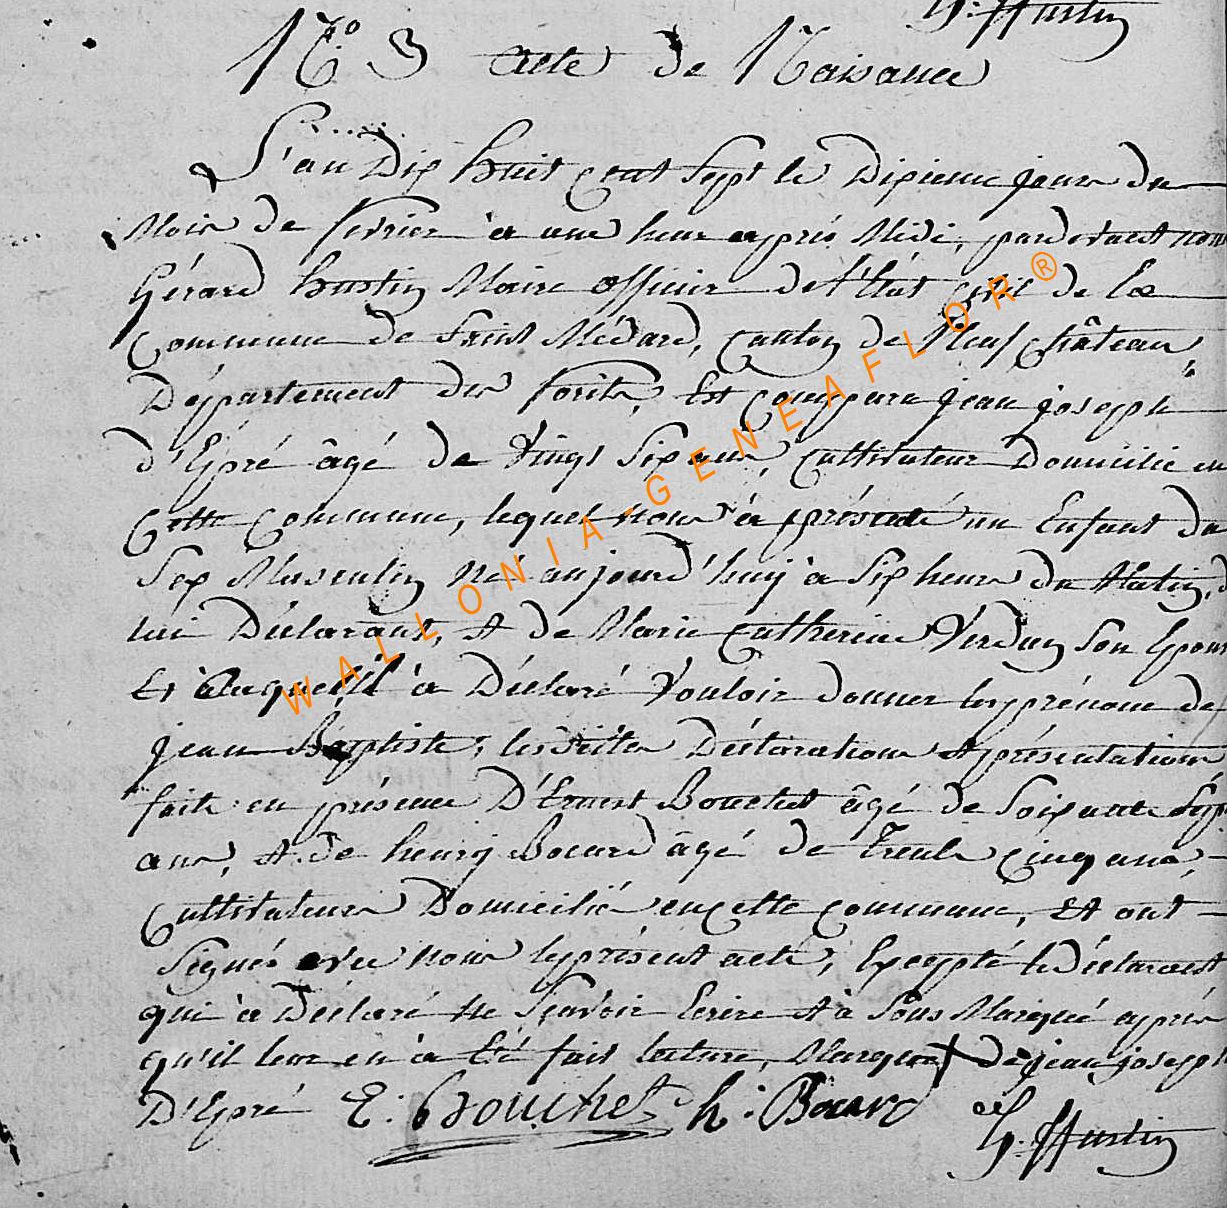 G. Hustin
N.o 3 acte de Naisance
L'an Dix huit cent Sept le Dixieme jour du
Mois de fevrier à une heure après Midi, pardevant nous
Gérard hustin Maire officier de l'Etat Civil de la
Commune de Saint Médard, canton de Neufchâteau,
Département des forêts, Est comparu jean joseph
d'Epré âgé de Vingt Six ans, cultivateur Domicilié en
cette commune, lequel nous à présenté un Enfant du
Sex Masculin né aujourd'huy à Six heures du Matin, d
lui Déclarant, et de Marie Catherine Verdun Son Epous
Et auquel il à Déclaré Vouloir donner les prénoms de
jean Baptiste, les dites Déclaration et présentation
faite en présence D'Ernest Bouchet âgé de Soixante Sept
ans, et de henry Bocard âgé de Trente cinq ans
cultivateurs Domicilié en cette commune, et ont
Signés avec nous le présent acte, Excepté le Déclarant
qui à Déclaré ne Scavoir Ecrire et à Sous Marqué après
qu'il leur en à été fait lecture, Marque X De jean joseph
D'Epré E: Bouchet h: Bocard G. Hustin
WALLONIA-GENEAFLOR®